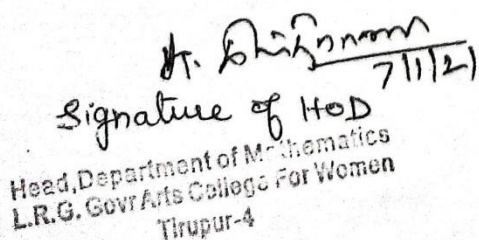 7/1/21
Signature of HOD
Head, Department of Mathematics
L.R.G. Govt Arts College For Women
Tirupur-4